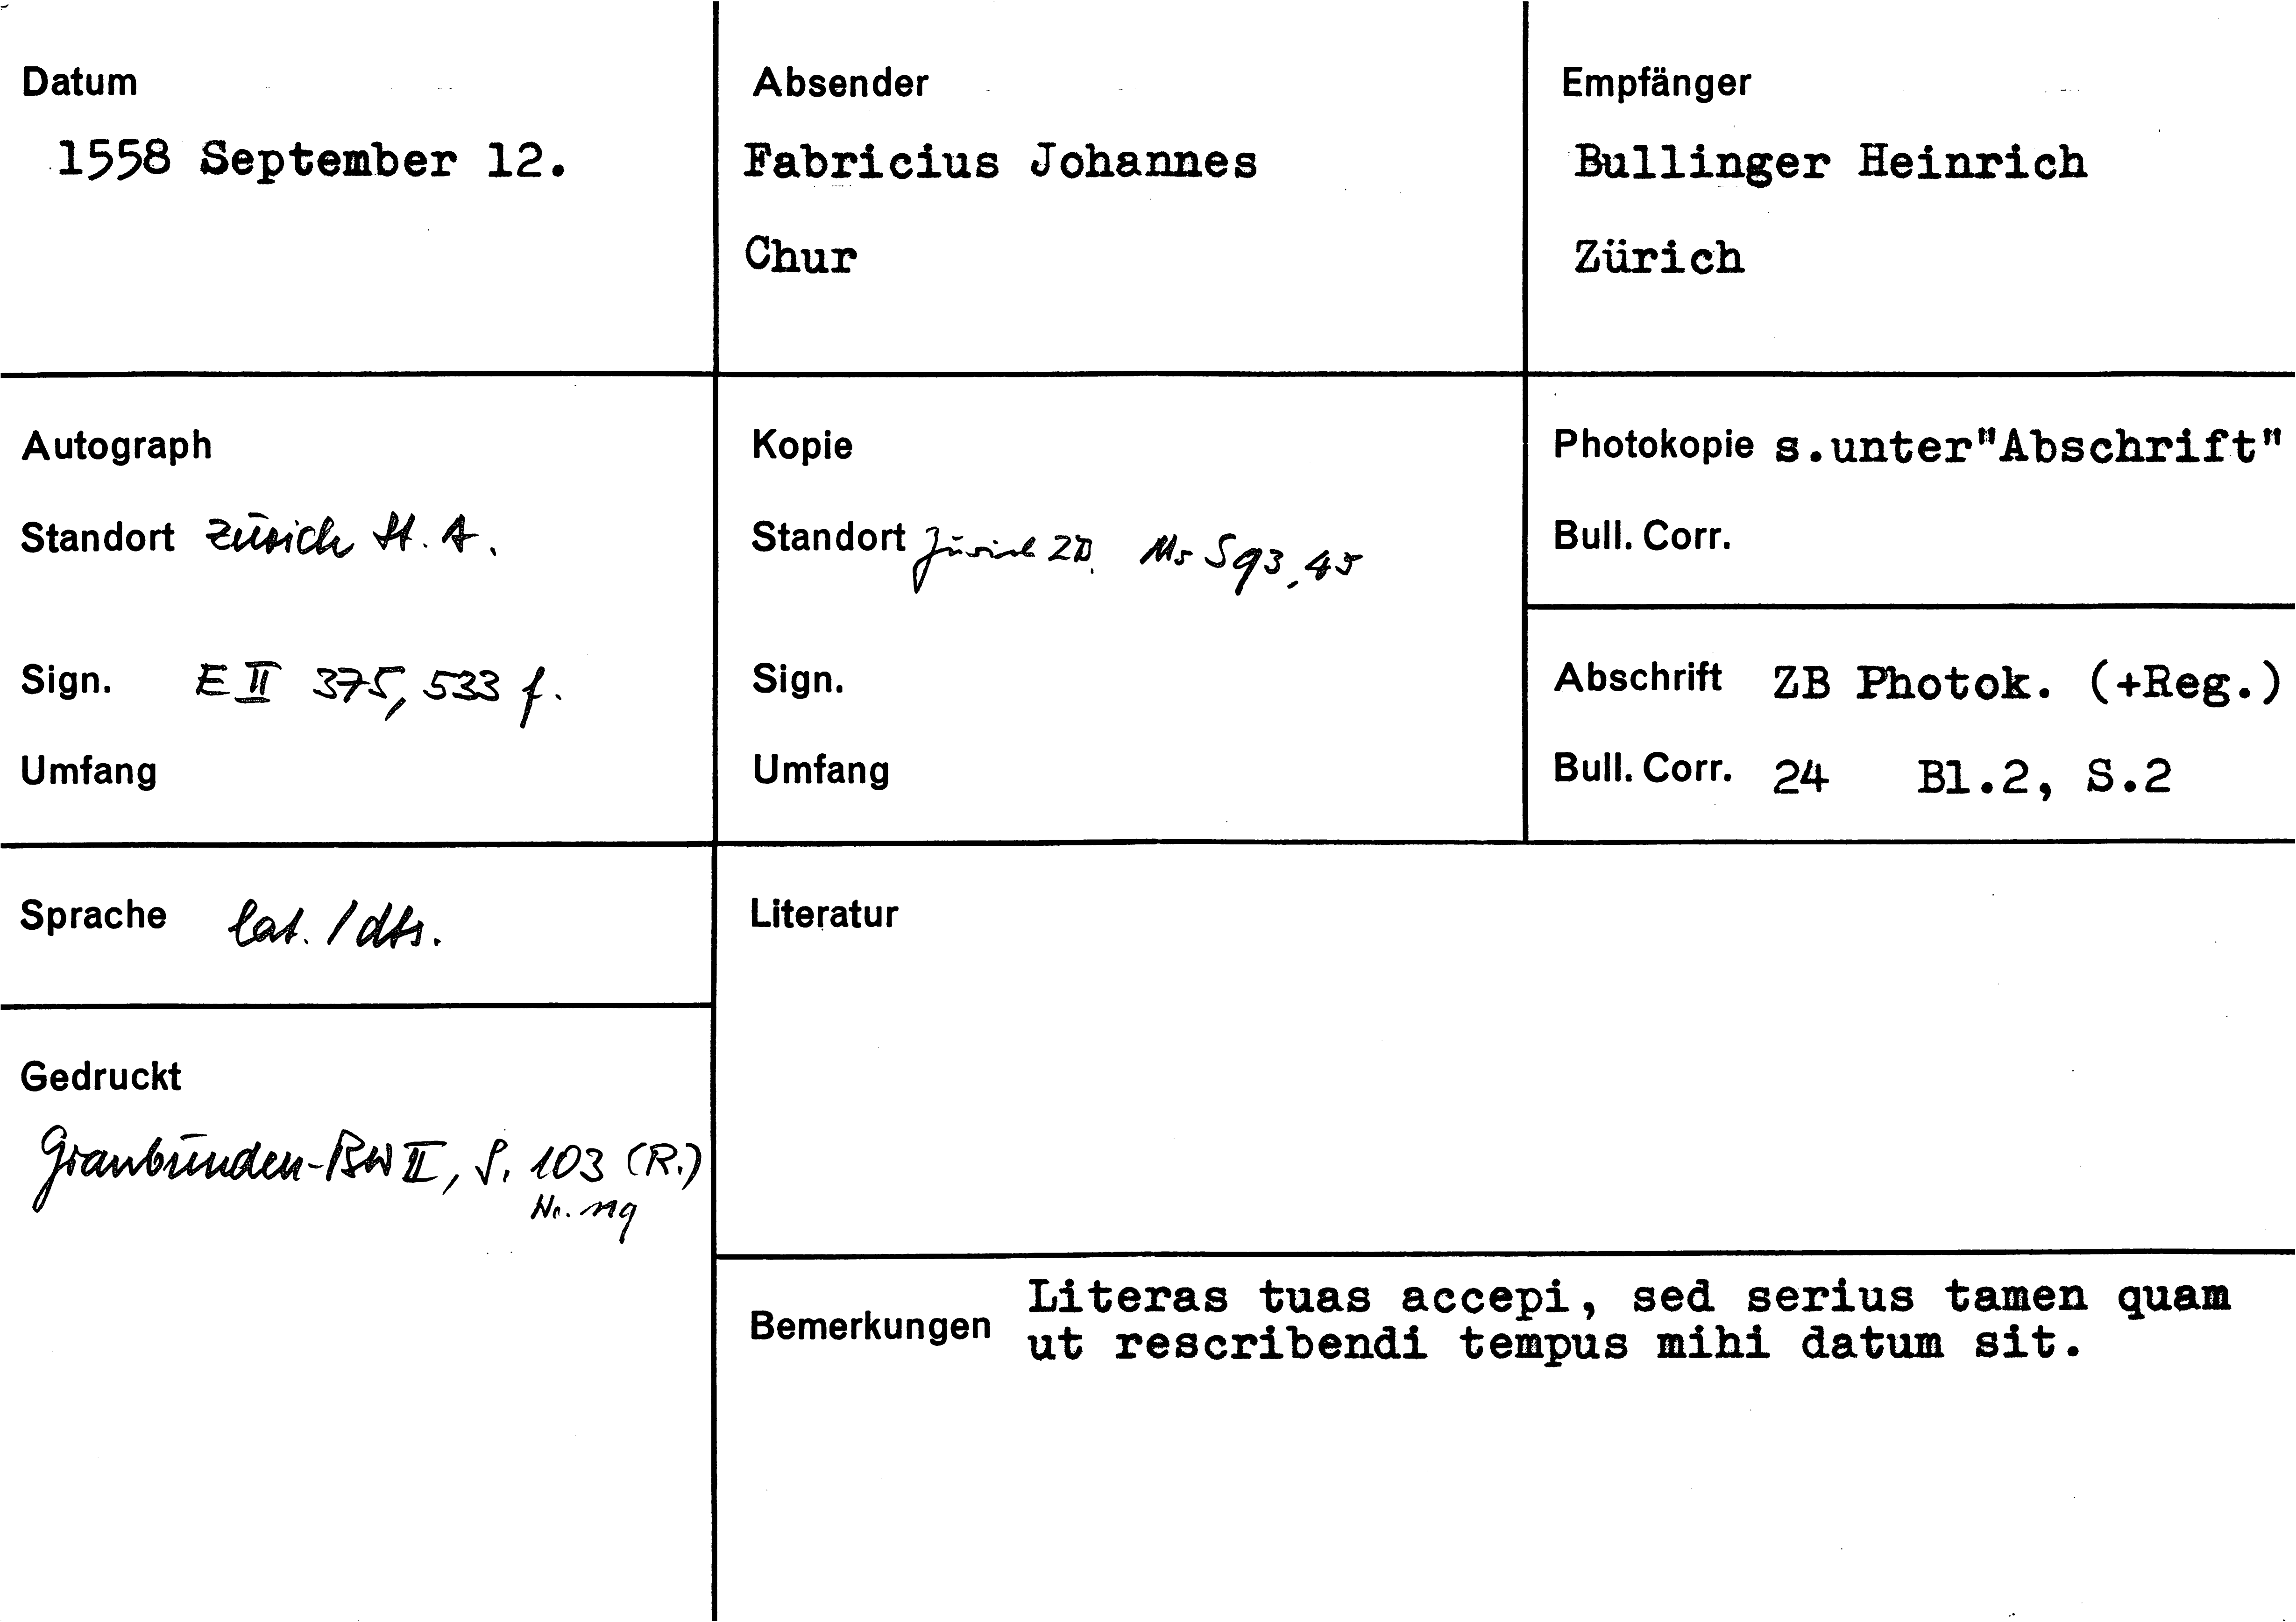 Datum
1558 September 12.
Absender
Fabricius Johannes
Chur
Empfänger
Bullinger Heinrich
Zürich
Autograph
Standort Zürich St. A.
Sign. E II 375, 533 f.
Umfang
Kopie
Standort Zürich ZB. Ms S 93, 45
Sign.
Umfang
Photokopie s.unter"Abschrift"
Bull. Corr.
Abschrift ZB Photok. (+Reg.)
Bull. Corr. 24 Bl.2, S.2
Sprache lat. / dts.
Literatur
Gedruckt
Graubünden-BW II, S. 103 (R.)
Nr. 119
Bemerkungen
Literas tuas accepi, sed serius tamen quam
ut rescribendi tempus mihi datum sit.